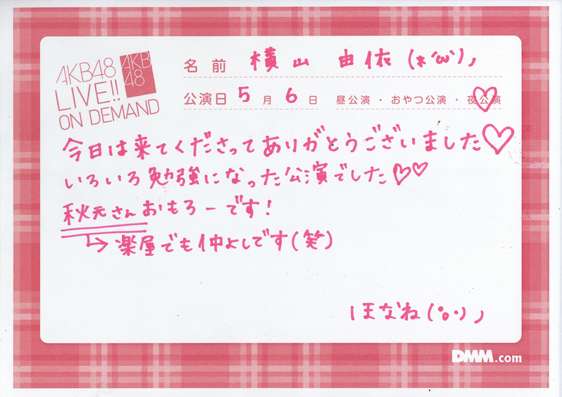 AKB48
LIVE!!
ON DEMAND
AKB
48
名前 横山 由依 (*'ω')ノ
公演日 5月6日 昼公演・おやつ公演・夜公演
今日は来てくださってありがとうございました♡
いろいろ勉強になった公演でした♡♡
秋元さんおもろーです!
→楽屋でも仲よしです(笑)
ほなね(°o°)ノ
DMM.com